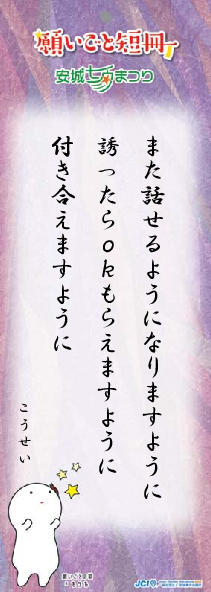 願いごと短冊
安城七夕まつり
また話せるようになりますように
誘ったらokもらえますように
付き合えますように
こうせい
願いごと短冊
JCI